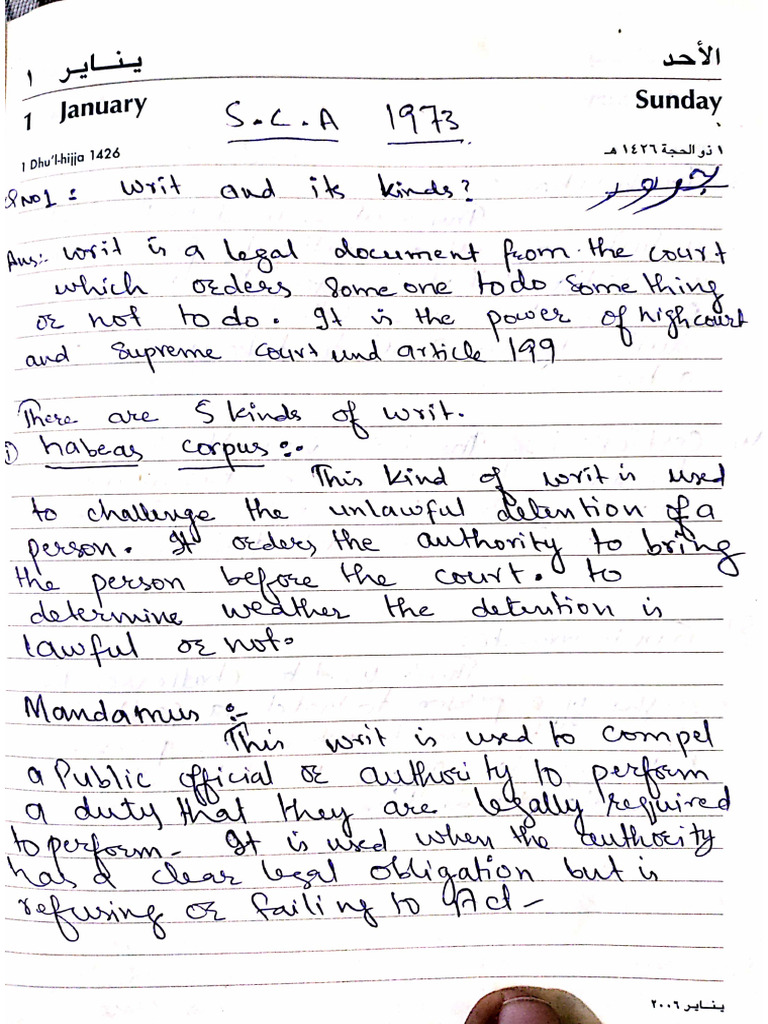 ١ يناير الأحد
1 January Sunday
S.C.A 1973
1 Dhu'l-hijja 1426 ١ ذو الحجة ١٤٢٦ هـ
QNO1: writ and its kinds?
Ans:- writ is a legal document from the court
which orders some one to do some thing
or not to do. It is the power of high court
and supreme court und article 199
There are 5 kinds of writ.
i) habeas corpus:-
This kind of writ is used
to challenge the unlawful detention of a
person. It orders the authority to bring
the person before the court. to
determine weather the detention is
lawful or not.
Mandamus :-
This writ is used to compel
a Public official or authority to perform
a duty that they are legally required
to perform- It is used when the authority
has a clear legal obligation but is
refusing or failing to Act-
يناير ٢٠٠٦